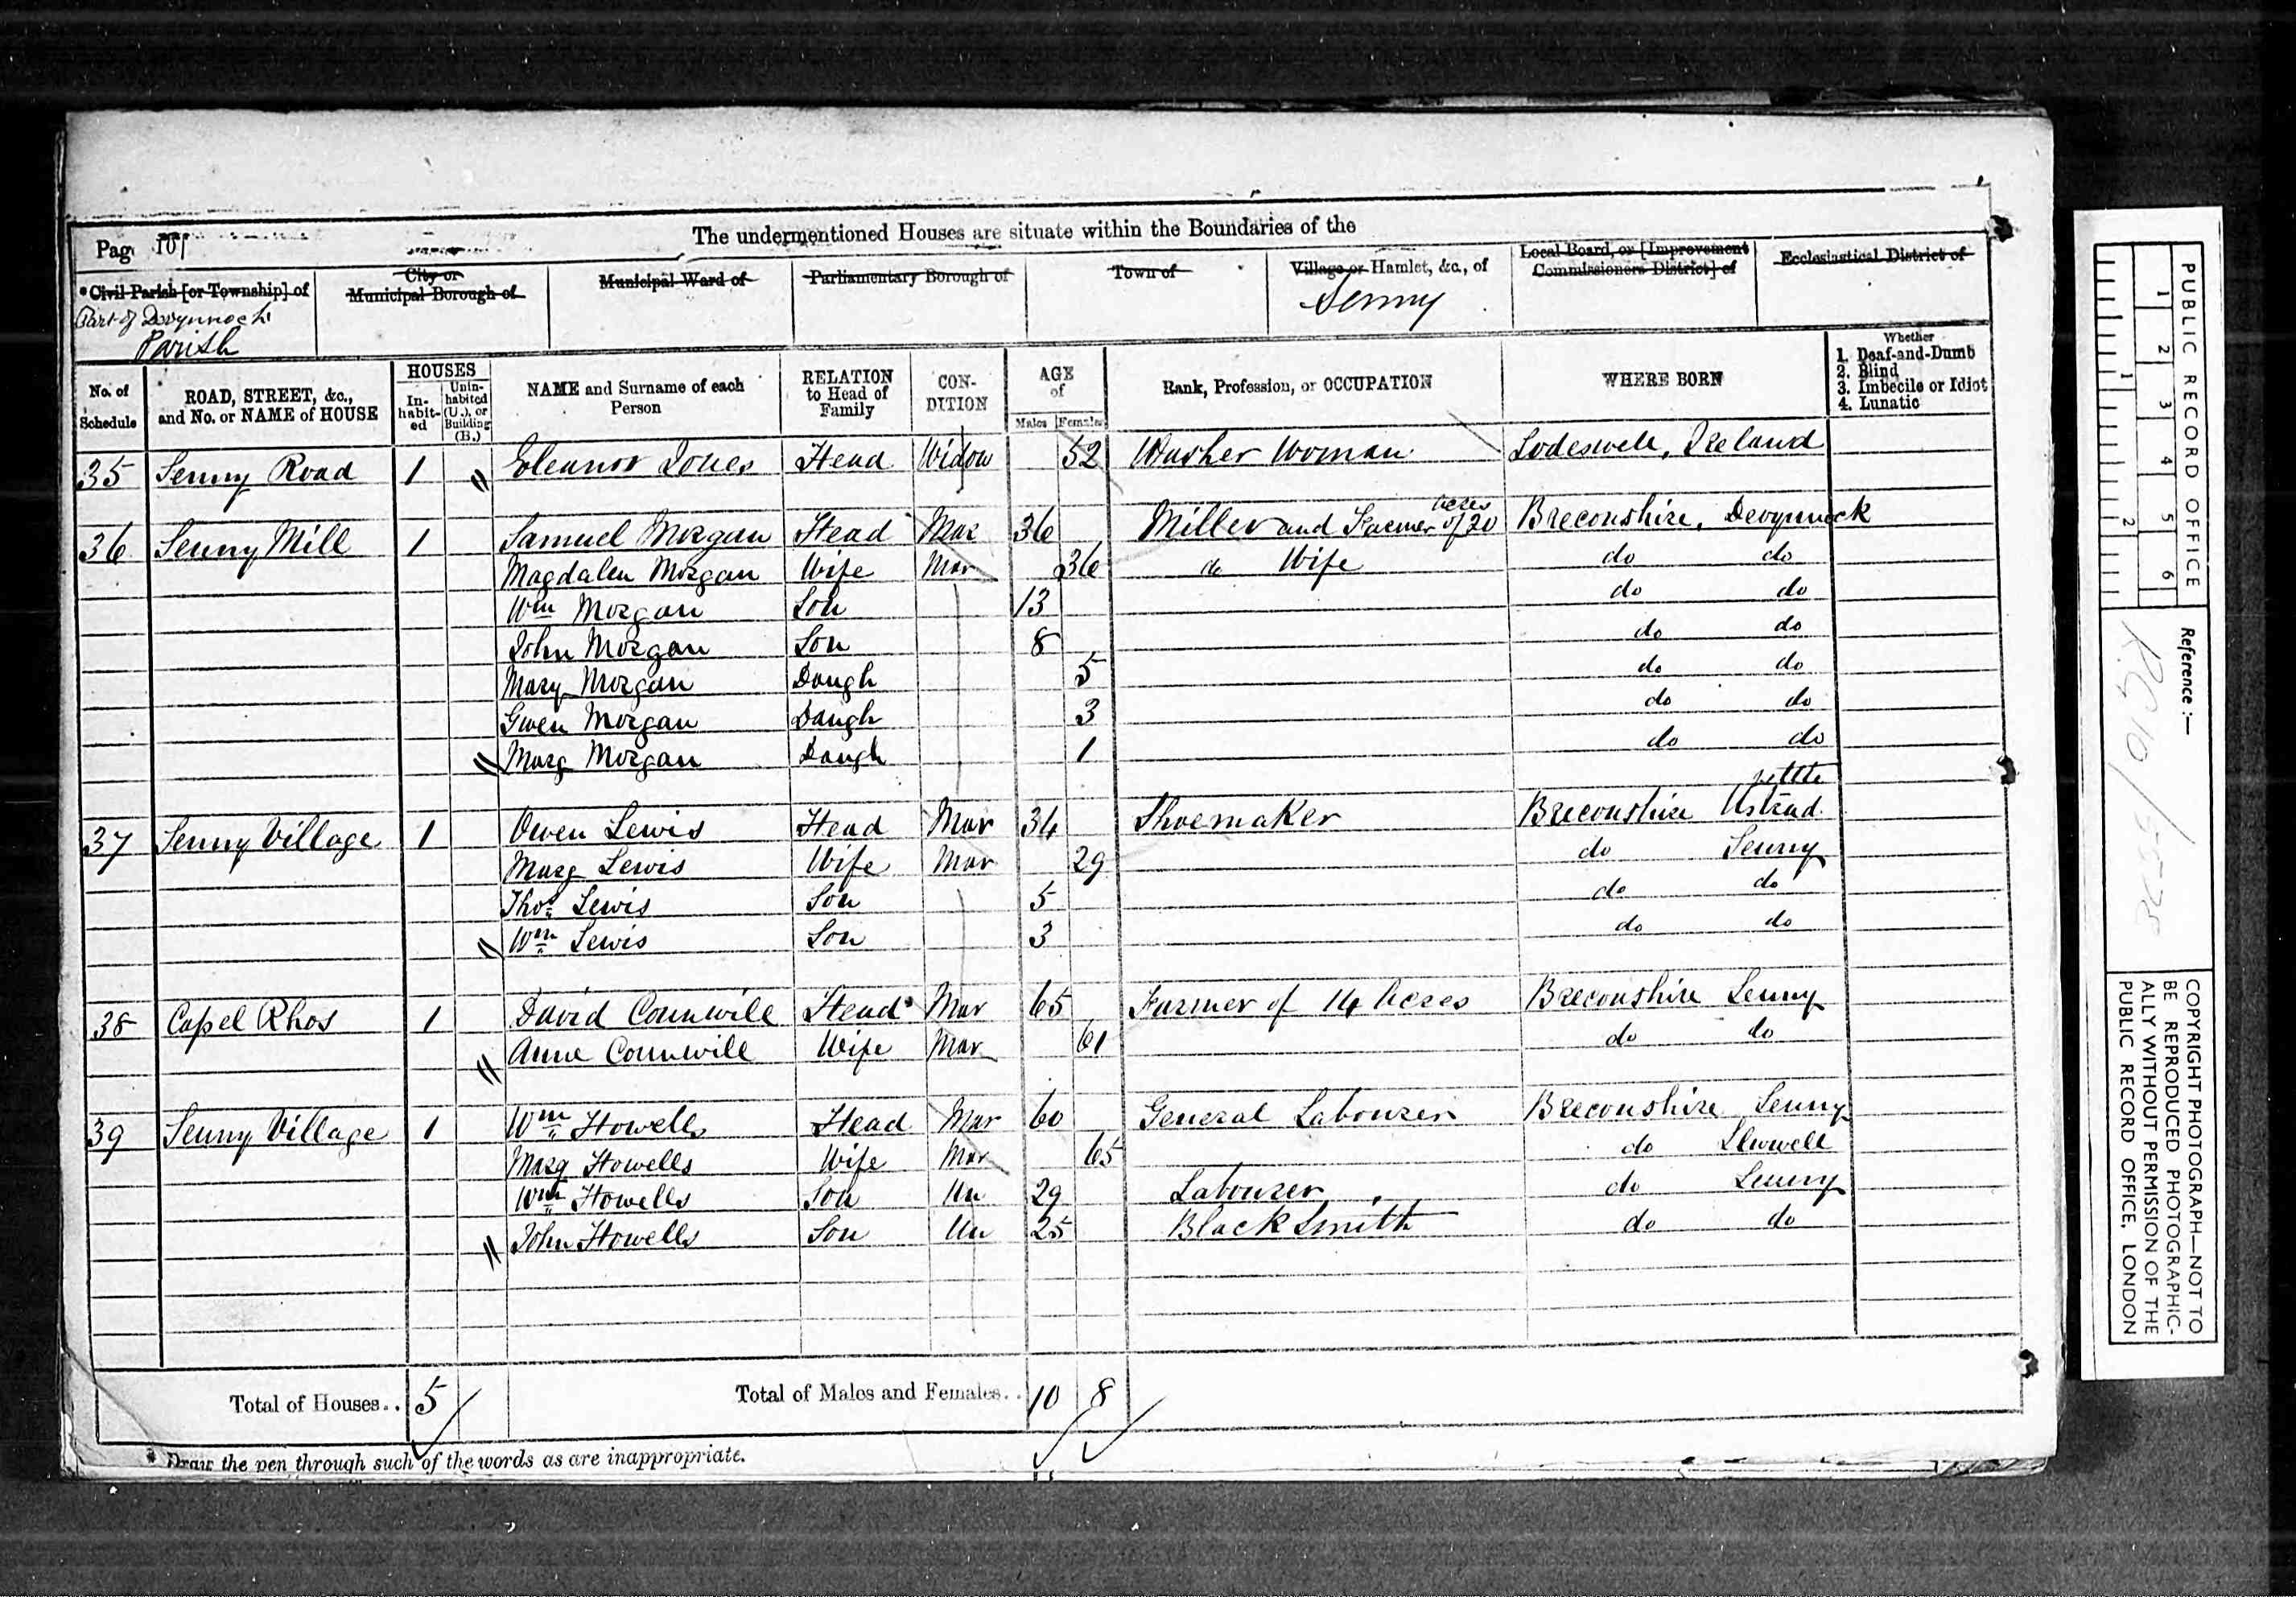 Page 10
The undermentioned Houses are situate within the Boundaries of the
*Civil Parish [or Township] of
Part of Devynnock
Parish
City or Municipal Borough of
Municipal Ward of
Parliamentary Borough of
Town of
Village or Hamlet, &c., of
Senny
Local Board, or [Improvement Commissioners District] of
Ecclesiastical District of
No. of Schedule
ROAD, STREET, &c., and No. or NAME of HOUSE
HOUSES
In-habit-ed
Unin-habited (U.), or Building (B.)
NAME and Surname of each Person
RELATION to Head of Family
CON-DITION
AGE of
Males Females
Rank, Profession, or OCCUPATION
WHERE BORN
Whether
1. Deaf-and-Dumb
2. Blind
3. Imbecile or Idiot
4. Lunatic
35 Senny Road 1 Eleanor Jones Head Widow 52 Washer Woman Ireland
36 Senny Mill 1 Samuel Morgan Head Mar 36 Miller and Farmer of 20 Acres Breconshire, Devynnock
Magdalen Morgan Wife Mar 36 do Wife do do
Wm Morgan Son 13 do do
John Morgan Son 8 do do
Mary Morgan Daugh 5 do do
Gwen Morgan Daugh 3 do do
Marg Morgan Daugh 1 do do
37 Senny Village 1 Owen Lewis Head Mar 34 Shoemaker Breconshire Ustrad
Marg Lewis Wife Mar 29 do Senny
Thos Lewis Son 5 do do
Wm Lewis Son 3 do do
38 Capel Rhos 1 David Cornwill Head Mar 65 Farmer of 14 Acres Breconshire Senny
Anne Cornwill Wife Mar 61 do do
39 Senny Village 1 Wm Howells Head Mar 60 General Labourer Breconshire Senny
Marg Howells Wife Mar 65 do
Wm Howells Son Un 29 Labourer do Senny
John Howells Son Un 25 BlackSmith do do
Total of Houses.. 5
Total of Males and Females.. 10 8
* Draw the pen through such of the words as are inappropriate.
PUBLIC RECORD OFFICE
1 2 3 4 5 6
1 2
Reference :—
R.G. 10/5578
COPYRIGHT PHOTOGRAPH—NOT TO
BE REPRODUCED PHOTOGRAPHIC-
ALLY WITHOUT PERMISSION OF THE
PUBLIC RECORD OFFICE, LONDON